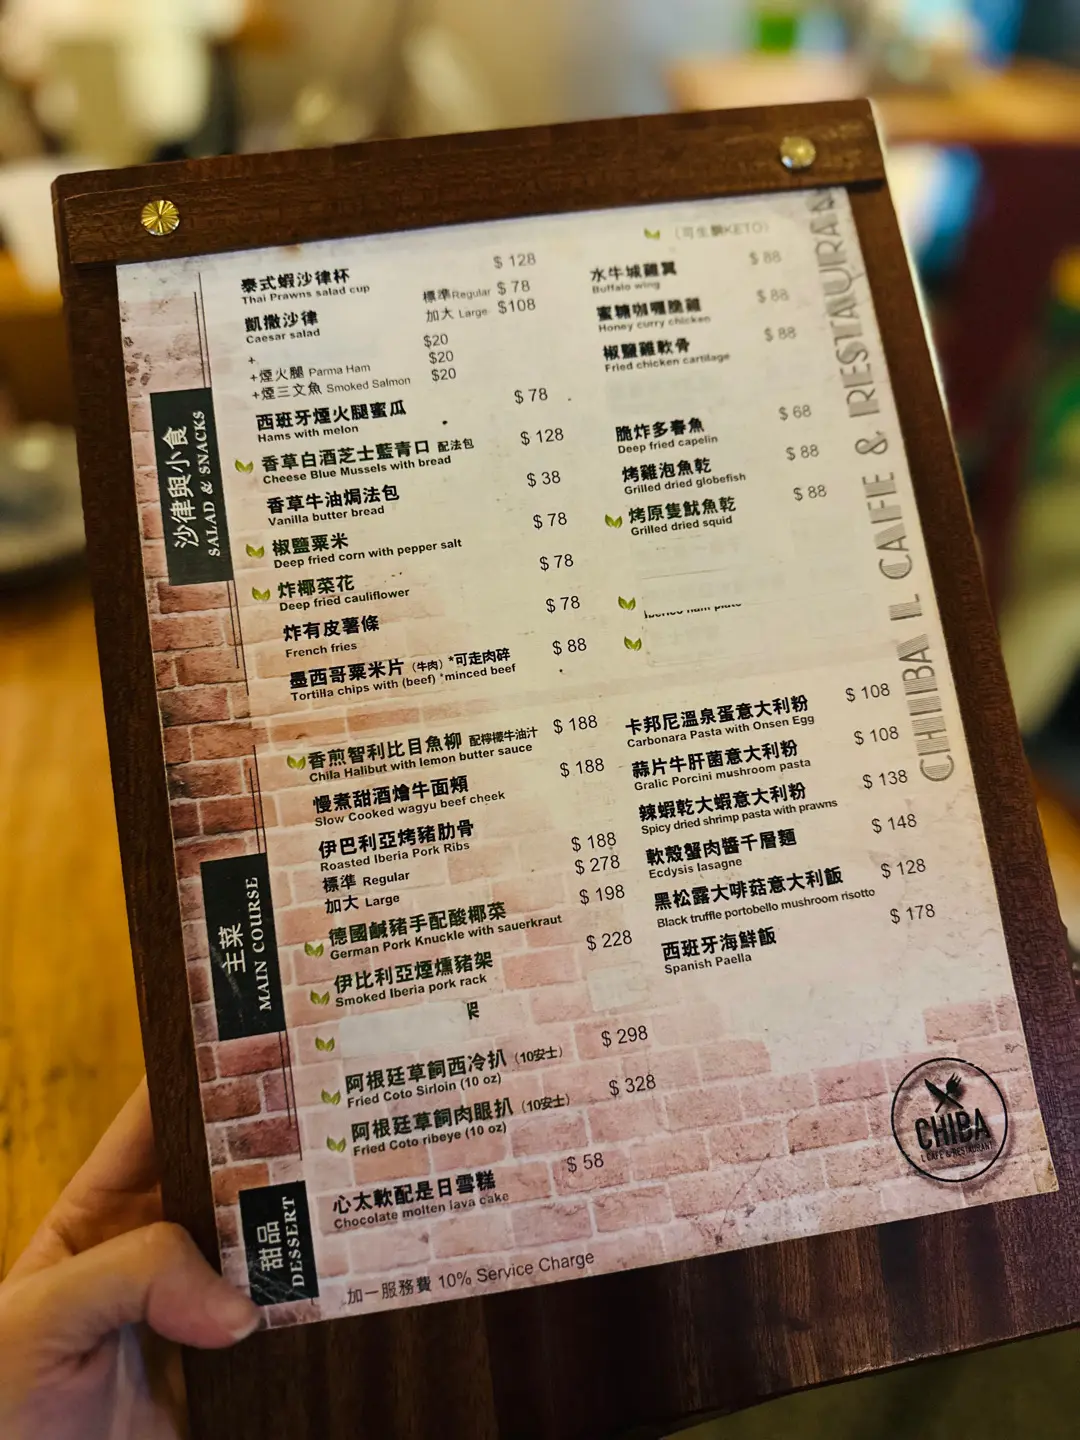 沙律與小食
SALAD & SNACKS
泰式蝦沙律杯 $ 128
Thai Prawns salad cup
凱撒沙律 標準 Regular $ 78
Caesar salad 加大 Large $108
+ $20
+煙火腿 Parma Ham $20
+煙三文魚 Smoked Salmon $20
西班牙煙火腿蜜瓜 $ 78
Hams with melon
香草白酒芝士藍青口 配法包 $ 128
Cheese Blue Mussels with bread
香草牛油焗法包 $ 38
Vanilla butter bread
椒鹽粟米 $ 78
Deep fried corn with pepper salt
炸椰菜花 $ 78
Deep fried cauliflower
炸有皮薯條 $ 78
French fries
墨西哥粟米片（牛肉）*可走肉碎 $ 88
Tortilla chips with (beef) *minced beef
（可生酮KETO）
水牛城雞翼 $ 88
Buffalo wing
蜜糖咖喱脆雞 $ 88
Honey curry chicken
椒鹽雞軟骨 $ 88
Fried chicken cartilage
脆炸多春魚 $ 68
Deep fried capelin
烤雞泡魚乾 $ 88
Grilled dried globefish
烤原隻魷魚乾 $ 88
Grilled dried squid
主菜
MAIN COURSE
香煎智利比目魚柳 配檸檬牛油汁 $ 188
Chila Halibut with lemon butter sauce
慢煮甜酒燴牛面頰 $ 188
Slow Cooked wagyu beef cheek
伊巴利亞烤豬肋骨
Roasted Iberia Pork Ribs
標準 Regular $ 188
加大 Large $ 278
德國鹹豬手配酸椰菜 $ 198
German Pork Knuckle with sauerkraut
伊比利亞煙燻豬架 $ 228
Smoked Iberia pork rack
架
阿根廷草飼西冷扒（10安士） $ 298
Fried Coto Sirloin (10 oz)
阿根廷草飼肉眼扒（10安士） $ 328
Fried Coto ribeye (10 oz)
卡邦尼溫泉蛋意大利粉 $ 108
Carbonara Pasta with Onsen Egg
蒜片牛肝菌意大利粉 $ 108
Gralic Porcini mushroom pasta
辣蝦乾大蝦意大利粉 $ 138
Spicy dried shrimp pasta with prawns
軟殼蟹肉醬千層麵 $ 148
Ecdysis lasagne
黑松露大啡菇意大利飯 $ 128
Black truffle portobello mushroom risotto
西班牙海鮮飯 $ 178
Spanish Paella
甜品
DESSERT
心太軟配是日雪糕 $ 58
Chocolate molten lava cake
加一服務費 10% Service Charge
CHIBA IL CAFE & RESTAURAN
CHIBA
IL CAFE & RESTAURANT